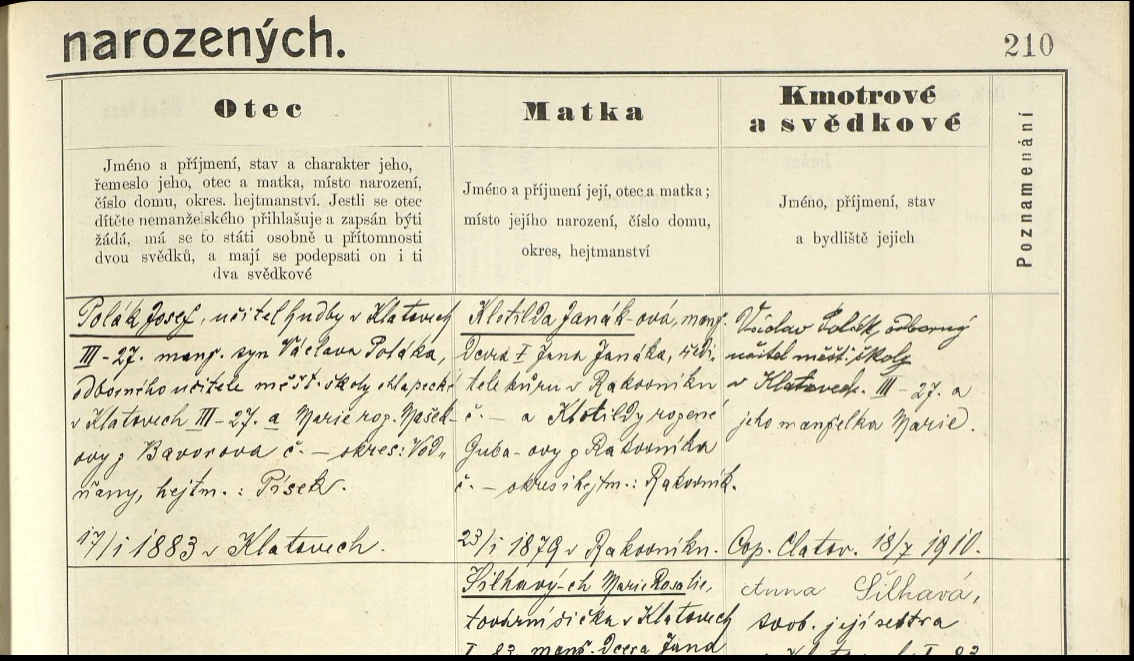 narozených.
210
Otec
Jméno a příjmení, stav a charakter jeho,
řemeslo jeho, otec a matka, místo narození,
číslo domu, okres. hejtmanství. Jestli se otec
dítěte nemanželského přihlašuje a zapsán býti
žádá, má se to státi osobně u přítomnosti
dvou svědků, a mají se podepsati on i ti
dva svědkové
Matka
Jméno a příjmení její, otec a matka;
místo jejího narození, číslo domu,
okres, hejtmanství
Kmotrové
a svědkové
Jméno, příjmení, stav
a bydliště jejich
Poznamenání
Polák Josef, učitel hudby v Klatovech
III-27. manž. syn Václava Poláka,
odborného učitele měšt. školy chlapecké
v Klatovech III-27. a Marie roz. Mašek-
ovy z Bavorova č. — okres: Vod-
ňany, hejtm.: Písek.
17/I 1883 v Klatovech.
Klotilda Janák-ová, manž.
dcera † Jana Janáka, ředi-
tele kůru v Rakovníku
č. — a Klotildy rozené
Guba-ovy z Rakovníka
č. — okres i hejtm.: Rakovník.
23/I 1879 v Rakovníku.
Václav Polák, odborný
učitel měšť. školy
v Klatovech. III-27. a
jeho manželka Marie.
Cop. Clatov. 18/7 1910.
Šilhavý-ch Marie Rosalie,
tovární dička v Klatovech
I 83 manž. dcera Jana
Anna Šilhavá,
svob. její sestra